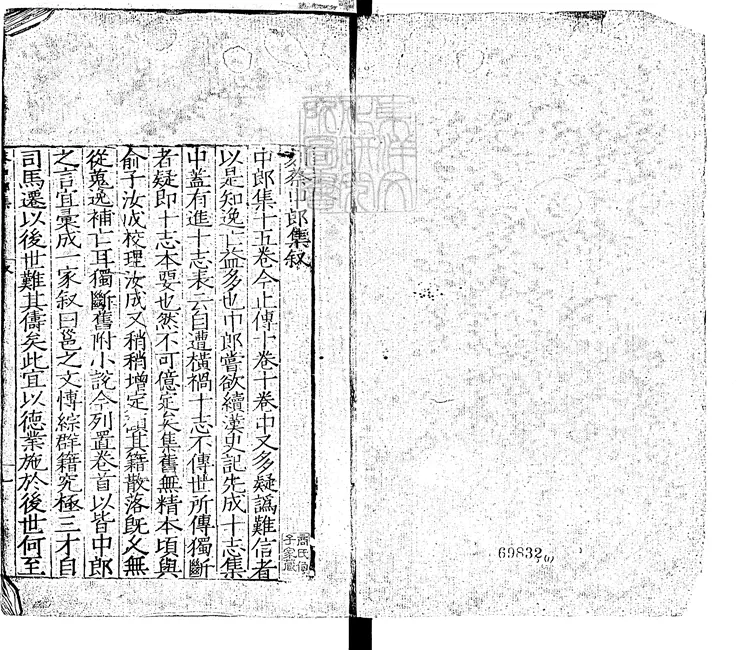 刻蔡中郎集叙
中郎集十五卷今止傳十卷十卷中又多疑譌難信者
以是知逸亡益多也中郎嘗欲續漢史記先成十志集
中蓋有進十志表云自遭橫禍十志不傳世所傳獨斷
者疑即十志本要也然不可億定矣集舊無精本頃與
俞子汝成校理汝成又稍稍增定顧其籍散落既久無
從蒐逸補亡耳獨斷舊附小說今列置卷首以皆中郎
之言宜彙成一家叙曰邕之文博綜群籍究極三才自
司馬遷以後世難其儔矣此宜以德業施於後世何至
69832